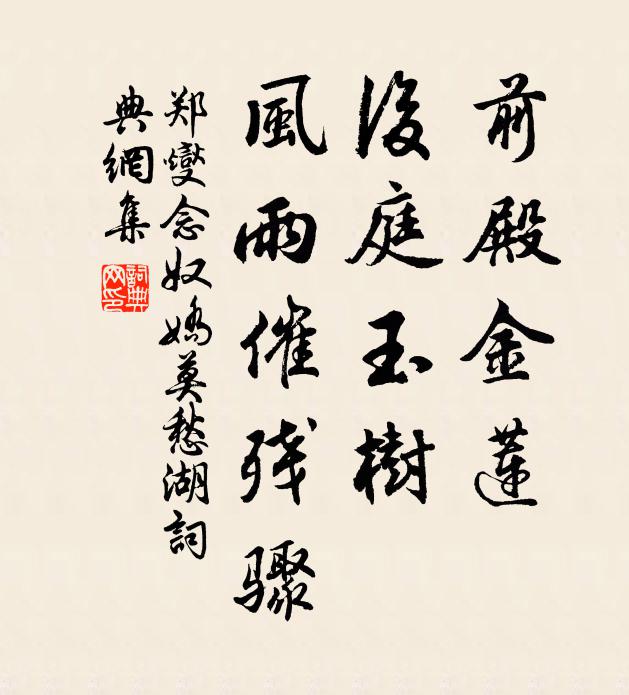 前殿金蓮
後庭玉樹
風雨催残驟
郑燮念奴嬌莫愁湖詞
典網集
詞典
网印